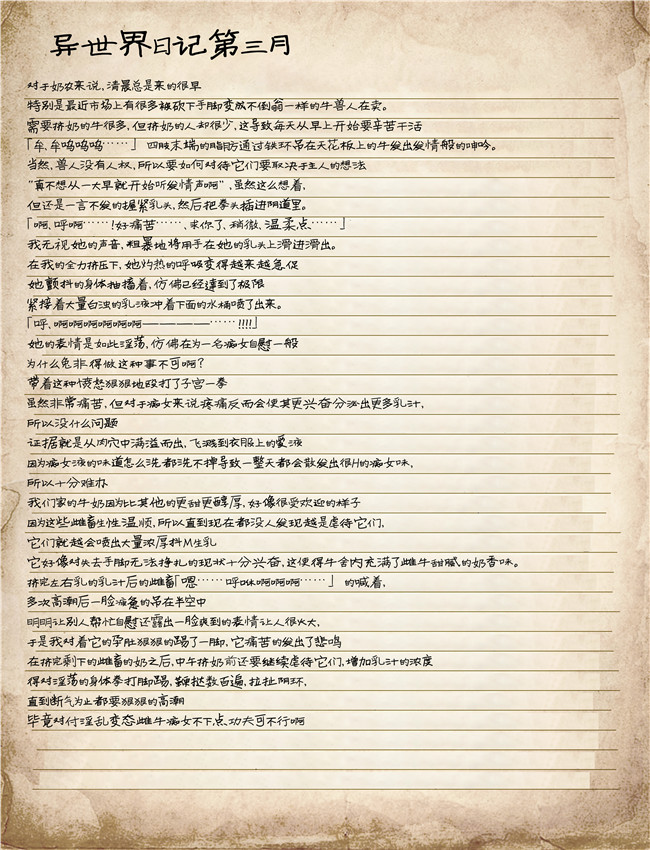 异世界日记第三月
对于奶农来说,清晨总是来的很早
特别是最近市场上有很多被砍下手脚变成不倒翁一样的牛兽人在卖。
需要挤奶的牛很多,但挤奶的人却很少,这导致每天从早上开始要辛苦干活
「牟,牟呜呜呜……」 四肢末端的脂肪通过铁环吊在天花板上的牛发出发情般的呻吟。
当然,兽人没有人权,所以要如何对待它们要取决于主人的想法
"真不想从一大早就开始听发情声啊",虽然这么想着,
但还是一言不发的握紧乳头,然后把拳头插进阴道里。
「啊、呼啊……!好痛苦……、求你了、稍微、温柔点……」
我无视她的声音,粗暴地将用手在她的乳头上滑进滑出。
在我的全力挤压下,她灼热的呼吸变得越来越急促
她颤抖的身体抽搐着,仿佛已经达到了极限
紧接着大量白浊的乳液冲着下面的水桶喷了出来。
「呼、啊啊啊啊啊啊啊————……!!!!」
她的表情是如此淫荡,仿佛在为一名痴女自慰一般
为什么我非得做这种事不可啊?
带着这种愤怒狠狠地殴打了子宫一拳
虽然非常痛苦,但对于痴女来说疼痛反而会使其更兴奋分泌出更多乳汁,
所以没什么问题
证据就是从肉穴中满溢而出,飞溅到衣服上的爱液
因为痴女液的味道怎么洗都洗不掉导致一整天都会散发出很H的痴女味,
所以十分难办
我们家的牛奶因为比其他的更甜更醇厚,好像很受欢迎的样子
因为这些雌畜生性温顺,所以直到现在都没人发现越是虐待它们,
它们就越会喷出大量浓厚抖M生乳
它好像对失去手脚无法挣扎的现状十分兴奋,这使得牛舍内充满了雌牛甜腻的奶香味。
挤完左右乳的乳汁后的雌畜「嗯……呼咻啊啊啊……」 的喊着,
多次高潮后一脸疲惫的吊在半空中
明明让别人帮忙自慰还露出一脸疲到的表情让人很火大,
于是我对着它的孕肚狠狠的踢了一脚,它痛苦的发出了悲鸣
在挤完剩下的雌畜的奶之后,中午挤奶前还要继续虐待它们,增加乳汁的浓度
得对淫荡的身体拳打脚踢,鞭挞数百遍,拉扯阴环,
直到断气为止都要狠狠的高潮
毕竟对付淫乱变态雌牛痴女不下点功夫可不行啊